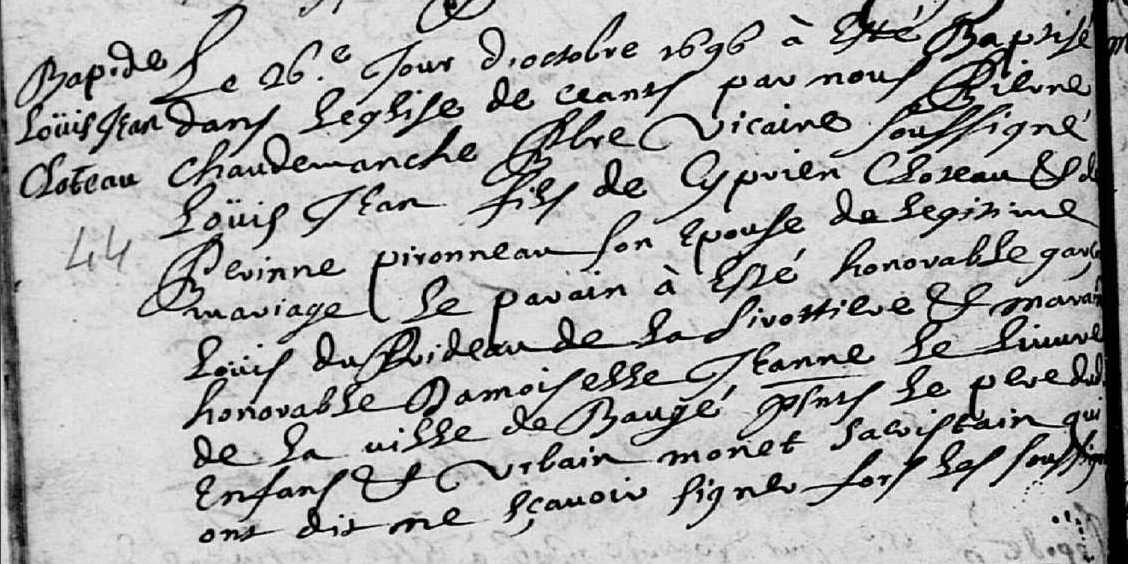 Bap. de
Loüis Jean
Cloteau
44
Le 26.e Jour d'octobre 1696 à Esté Baptisé
dans Leglise de ceans par nous Pierre
Chaudemanche Pbre Vicaire soussigné
Loüis Jean fils de Cyprien Cloteau & de
Perinne pironneau son Epouse de Legitime
mariage Le parain à Esté honorable garç
Loüis du Prideau de La Sivottiere & mara
honorable Damoiselle Jeanne Le
de La ville de Baugé pnts Le pere dud
Enfans & Vrbain monet Sacristain qui
ont dit ne sçavoir signer fors Les soussign